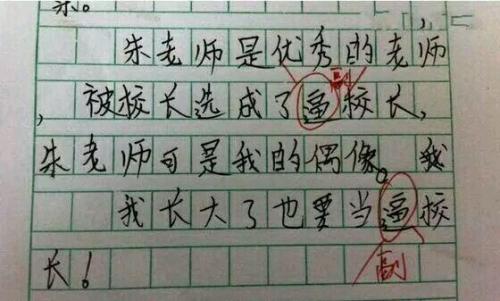 朱老师是优秀的老师
副
被校长选成了逼校长,
朱老师可是我的偶像。我
我长大了也要当逼校
长!
副